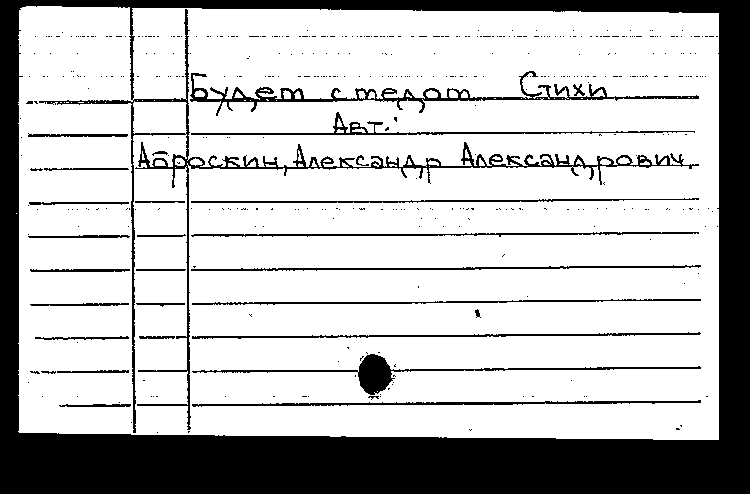 Будет с тедот Стихи
Авт.:
Аброскин, Александр Александрович.